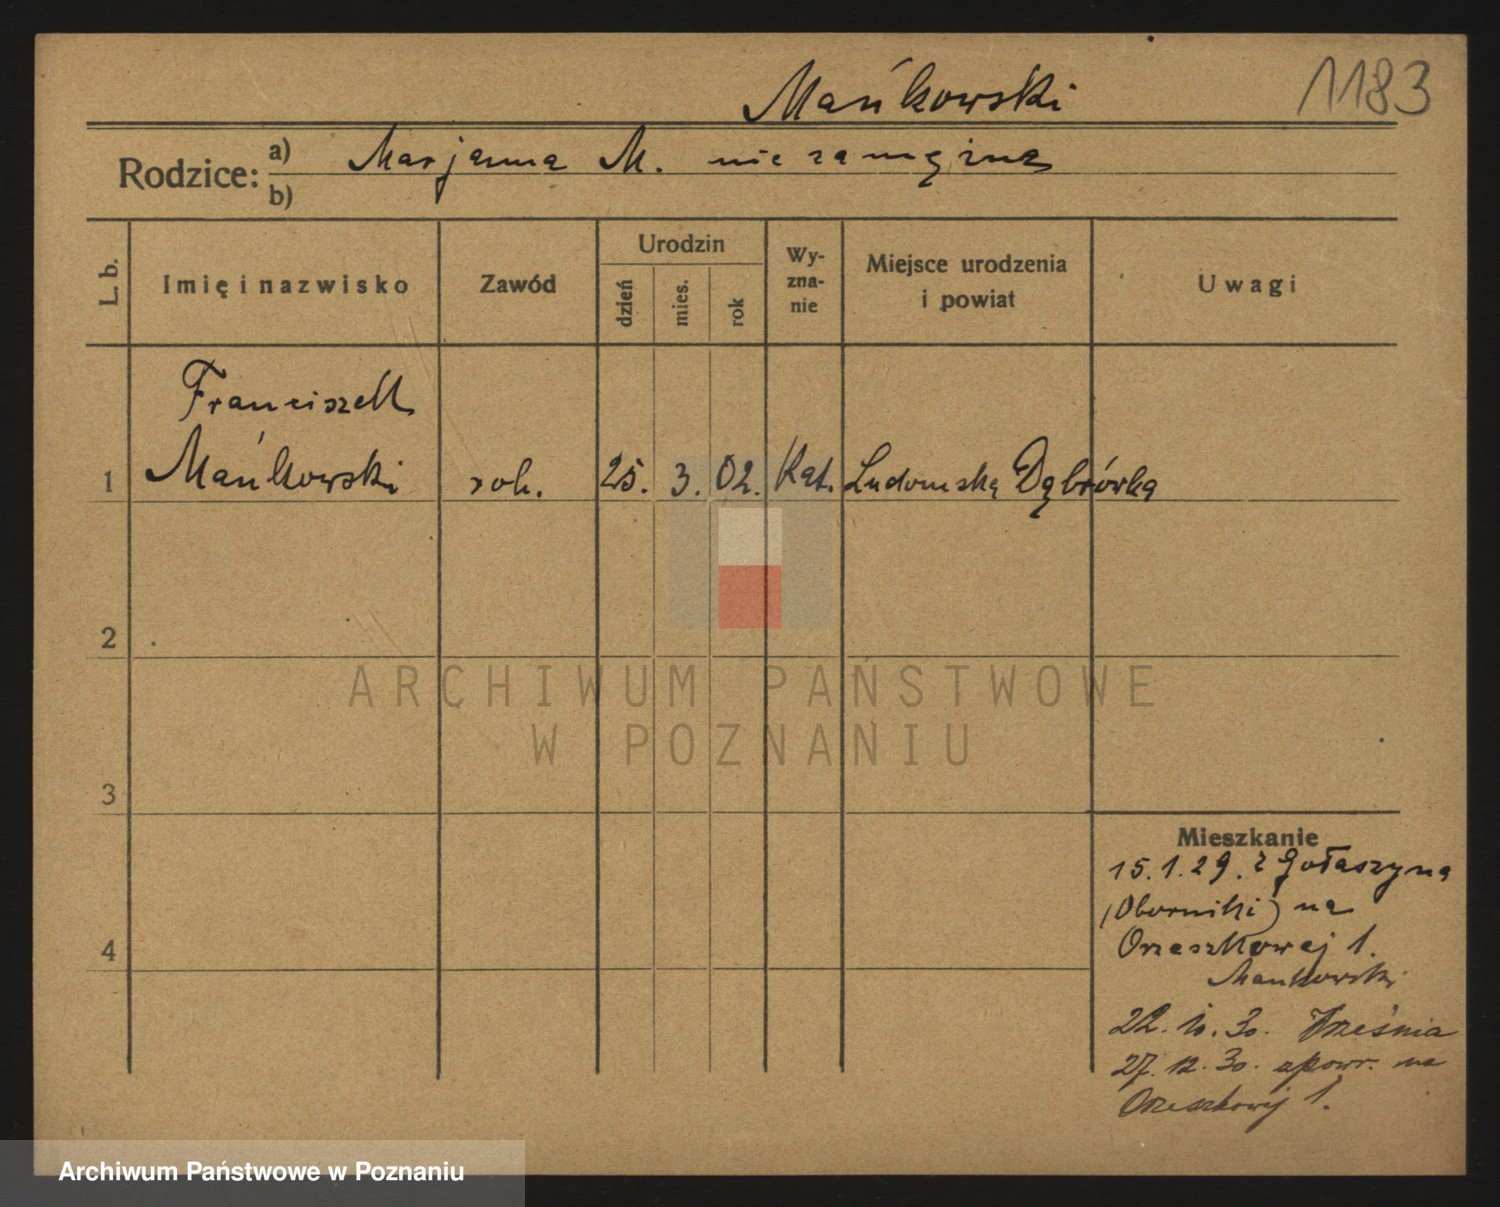 Mańkowski
1183
Rodzice:
a) Marjanna M. niezamężna
b)
L. b.
Imię i nazwisko
Zawód
Urodzin
dzień
mies.
rok
Wy-
zna-
nie
Miejsce urodzenia
i powiat
Uwagi
Franciszek
1 Mańkowski rob. 25. 3. 02. Kat. Ludomska Dąbrówka
2
ARCHIWUM PAŃSTWOWE
W POZNANIU
3
Mieszkanie
15.1.29. z Gołaszyna
(Oborniki) na
4
Orzeszkowej 1.
Mankowski
22. 10. 30. Września
27. 12. 30. zpowr. na
Orzeszkowej 1.
Archiwum Państwowe w Poznaniu